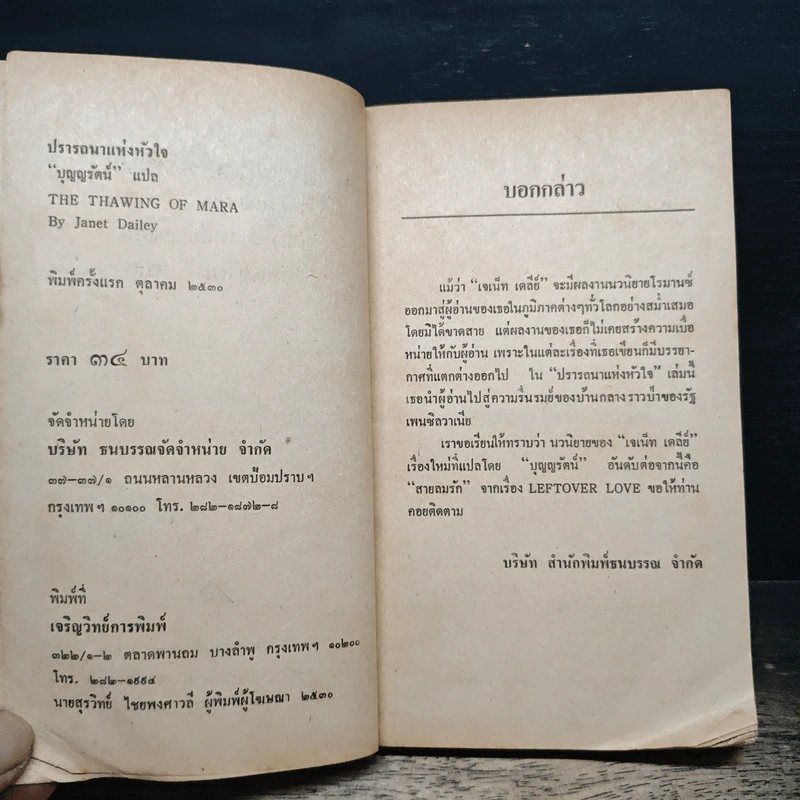 ปรารถนาแห่งหัวใจ
“บุญญรัตน์” แปล
THE THAWING OF MARA
By Janet Dailey
พิมพ์ครั้งแรก ตุลาคม ๒๕๓๐
ราคา ๓๔ บาท
จัดจำหน่ายโดย
บริษัท ธนบรรณจัดจำหน่าย จำกัด
๓๗-๓๗/๑ ถนนหลานหลวง เขตป้อมปราบฯ
กรุงเทพฯ ๑๐๑๐๐ โทร. ๒๘๒-๑๘๗๒-๘
พิมพ์ที่
เจริญวิทย์การพิมพ์
๓๒๒/๑-๒ ตลาดพานถม บางลำพู กรุงเทพฯ ๑๐๒๐๐
โทร. ๒๘๒-๑๙๙๔
นายสุรวิทย์ ไชยพงศาวลี ผู้พิมพ์ผู้โฆษณา ๒๕๓๐
บอกกล่าว
แม้ว่า “เจเน็ท เดลีย์” จะมีผลงานนวนิยายโรมานซ์
ออกมาสู่ผู้อ่านของเธอในภูมิภาคต่างๆทั่วโลกอย่างสม่ำเสมอ
โดยมิได้ขาดสาย แต่ผลงานของเธอก็ไม่เคยสร้างความเบื่อ
หน่ายให้กับผู้อ่าน เพราะในแต่ละเรื่องที่เธอเขียนก็มีบรรยา-
กาศที่แตกต่างออกไป ใน “ปรารถนาแห่งหัวใจ” เล่มนี้
เธอนำผู้อ่านไปสู่ความรื่นรมย์ของบ้านกลางราวป่าของรัฐ
เพนซิลวาเนีย
เราขอเรียนให้ทราบว่า นวนิยายของ “เจเน็ท เดลีย์”
เรื่องใหม่ที่แปลโดย “บุญญรัตน์” อันดับต่อจากนี้คือ
“สายลมรัก” จากเรื่อง LEFTOVER LOVE ขอให้ท่าน
คอยติดตาม
บริษัท สำนักพิมพ์ธนบรรณ จำกัด